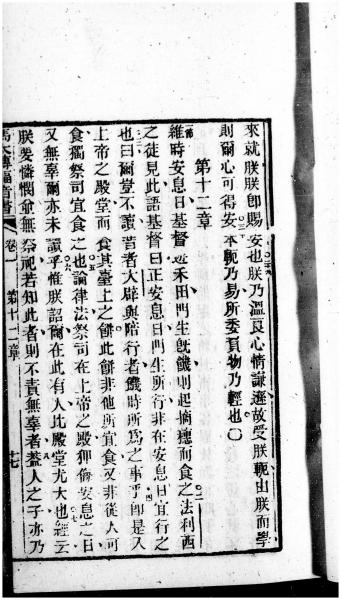 來就朕朕卽賜安也朕乃溫良心情謙遜故受朕軛由朕而學
則爾心可得安本軛乃易所委負物乃輕也〇
第十二章
維時安息日基督過禾田門生旣饑則起摘穗而食之法利西
之徒見此語基督曰正安息日門生所行非在安息日宜行之
也曰爾豈不讀書者大辟與陪行者饑時所為之事乎卽是入
上帝之殿堂而食其臺上之餅此餅非他所宜食又非從人可
食獨祭司宜食之也論律法祭司在上帝之殿猶偝安息之日
又無辜爾亦未讀乎惟朕詔爾在此有人比殿堂尤大也經云
朕要憐憫並無祭祀若知此者則不責無辜者蓋人之子亦乃
馬太傳福音書 卷一 第十二章 十七